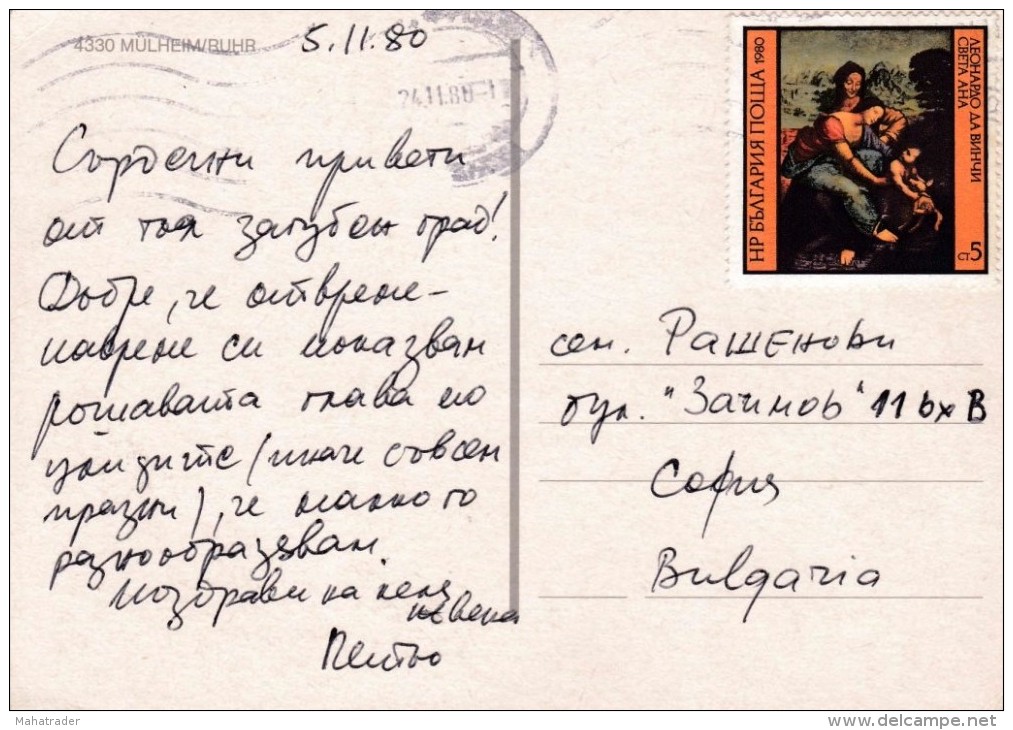 4330 MÜLHEIM/RUHR
5.11.80
24.11.80-1
Сърдечни привети
от тоя загубен град!
Добре, че отвреме-
навреме си показвам
рошавата глава по
улиците (иначе съвсем
празни), че малко го
разнообразявам.
Поздрави на леля
Невена
Петьо
НР БЪЛГАРИЯ ПОЩА 1980
ЛЕОНАРДО ДА ВИНЧИ
СВЕТА АНА
5 СТ
сем. Рашенови
бул. "Заимов" 11 вх В
София
Bulgaria
Mahatrader
www.delcampe.net